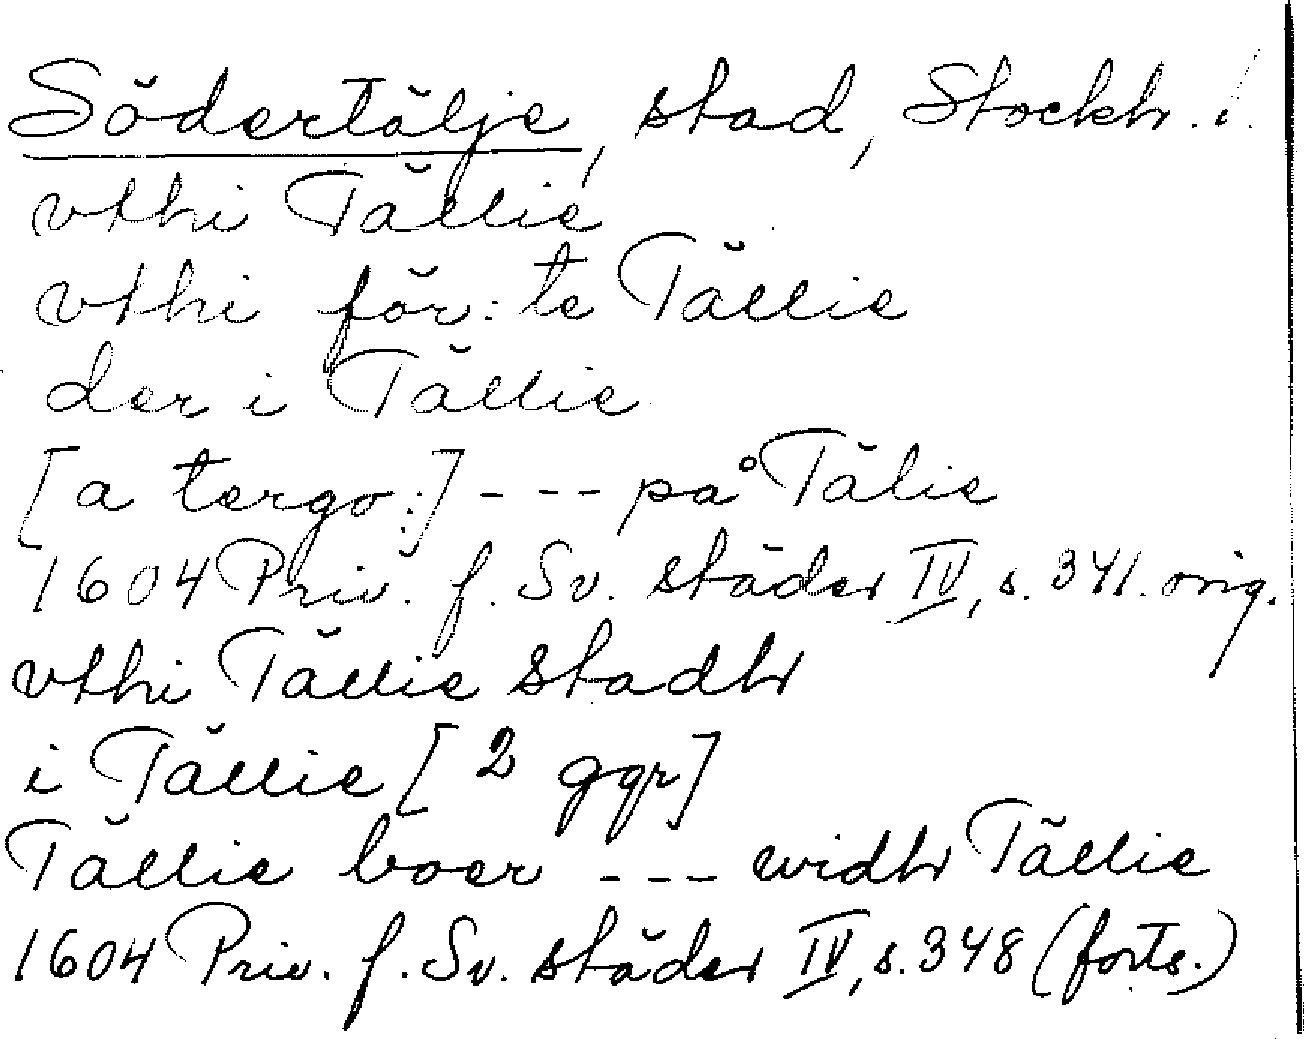 Södertälje, stad, Stockh. l.
vthi Tällie,
vthi för: te Tällie
der i Tällie
[a tergo:] - - - på Tälie
1604 Priv. f. Sv. städer IV, s. 341. orig.
vthi Tällie stadh
i Tällie [2 ggr]
Tällie boer - - - widh Tällie
1604 Priv. f. Sv. städer IV, s. 348 (forts.)